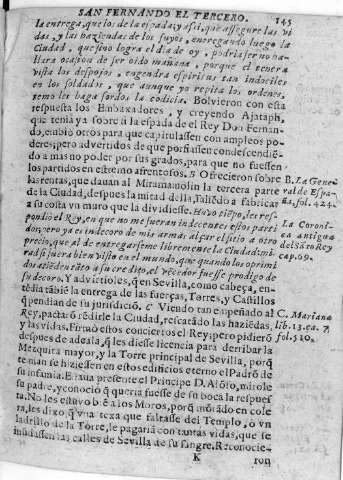 SAN FERNANDO EL TERCERO. 145
la entrega, que los de la espada; y assi, que assegure las vi
das, y las haziendas de los suyos, entregando luego la
Ciudad, que sino logra el dia de oy, podria ser no ha
llara ocasion de ser oido mañana, porque el tener a
vista los despojos, engendra espiritus tan indociles
en los soldados, que aunque yo repita los ordenes,
remo los haga sordos la codicia. Bolvieron con esta
respuesta los Embaxadores, y creyendo Ajataph,
que tenia ya sobre si la espada de el Rey Don Fernan-
do, embiò otros para que capitulassen con ampleos po
deres, pero advertidos de que porfiassen condescendié
do a mas no poder por sus grados, para que no fuessen
los partidos en estremo afrentosos. Ofrecieron sobre
las rentas, que dauan al Miramamolin la tercera parte
de la Ciudad, despues la mitad della, falledo a fabricar
a su costa vn muro que la dividiesse. Huvo tiepo, les res-
pondiò el Rey, en que no me fueran indecentes essos parti
dos, pero ya es indecoro de mis armas alçar el sitio a otro
precio, que al de entregarseme libremente la Ciudad: mi
rad si fuera bien visto en el mundo, que quando los oprimi
dos atienden tãto a su credito, el vecedor fuesse prodigo de
su decoro. Y advirtioles, q en Sevilla, como cabeça, en-
tedia tãbiẽ la entrega de las fuerças, Torres, y Castillos
q pendian de su jurisdició. Viendo tan empeñado al
Rey, pactarõ redirle la Ciudad, rescatãdo las haziẽdas,
y las vidas. Firmò estos conciertos el Rey, pero pidierõ
despues de adeala, q les diesse licencia para derribar la
Mezquita mayor, y la Torre principal de Sevilla, porq
te man se hiziessen en estos edificios eterno el Padrõ de
su infamia. Estaua presente el Principe D. Alõso, mirole
su padre, y conociò q queria fuesse de su boca la respues
ta. No les estuvo biẽ a los Moros, porq mõrado en cole
ra, les dixo, q vna texa que faltasse del Templo, o vn
ladrillo de la Torre, le pagariã con tantas vidas, que se
inũdassen las calles de Sevilla de su sangre. Reconocie-
K ron
B. La Gene
ral de Espa
ña, fol. 424.
La Coroni
ca antigua
del Sãto Rey
cap. 69.
C. Mariana
lib. 13. ca. 7.
fol. 520.